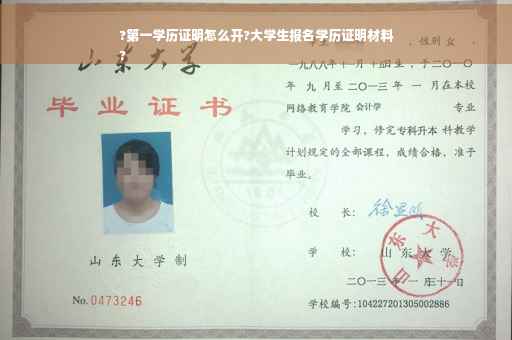 ?第一学历证明怎么开?大学生报名学历证明材料
?
山东大学
毕业证书
性别 女
一九八八年十一月十
日生,于二〇一〇
年 九 月至 二〇一三 年 一 月在本校
网络教育学院 会计学 专业
学习,修完 专科升本 科教学
计划规定的全部课程,成绩合格,准予
毕业。
校 长:
学 校: 山东大学
山东大学
二〇一三年 一 月三十一日
学校编号:104227201305002886
山东大学制
No. 0473246